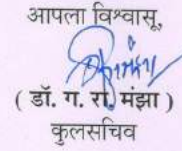 आपला विश्वासू,
( डॉ. ग. रा. मंझा )
कुलसचिव